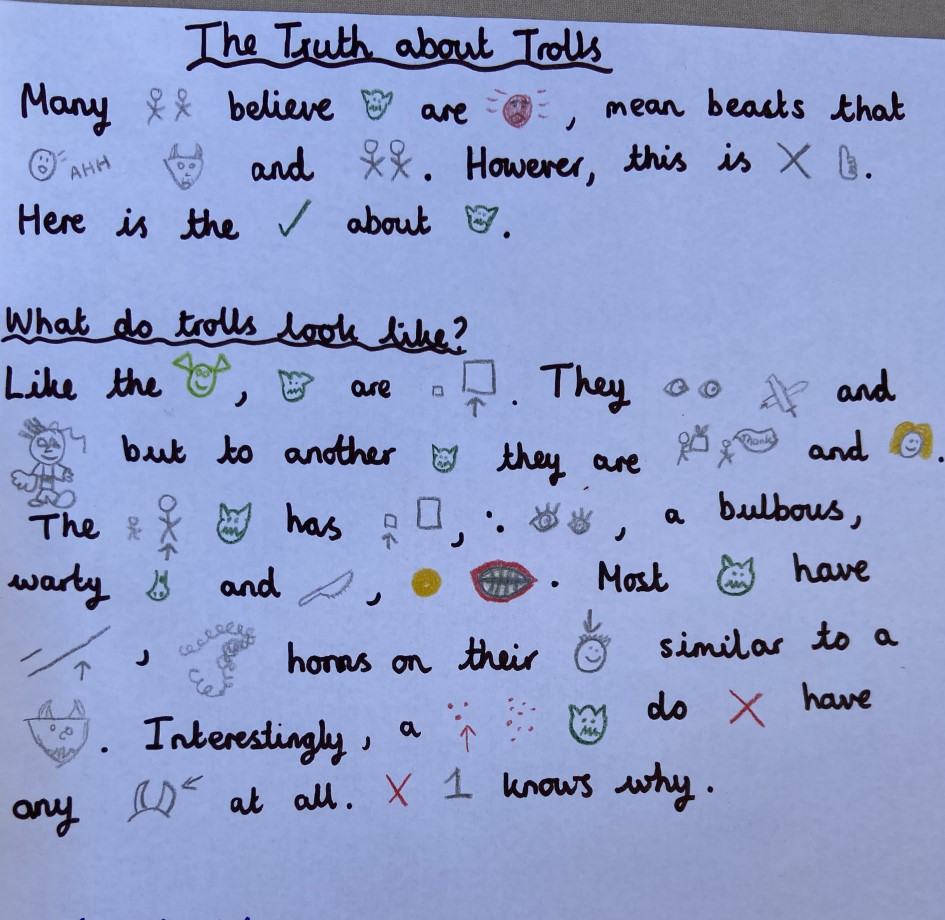 The Truth about Trolls
Many believe are , mean beasts that
AHH and . However, this is .
Here is the about .
What do trolls look like?
Like the , are . They and
but to another they are Thanks and .
The has , , a bulbous,
warty and , . Most have
, horns on their similar to a
. Interestingly, a do have
any at all. 1 knows why.